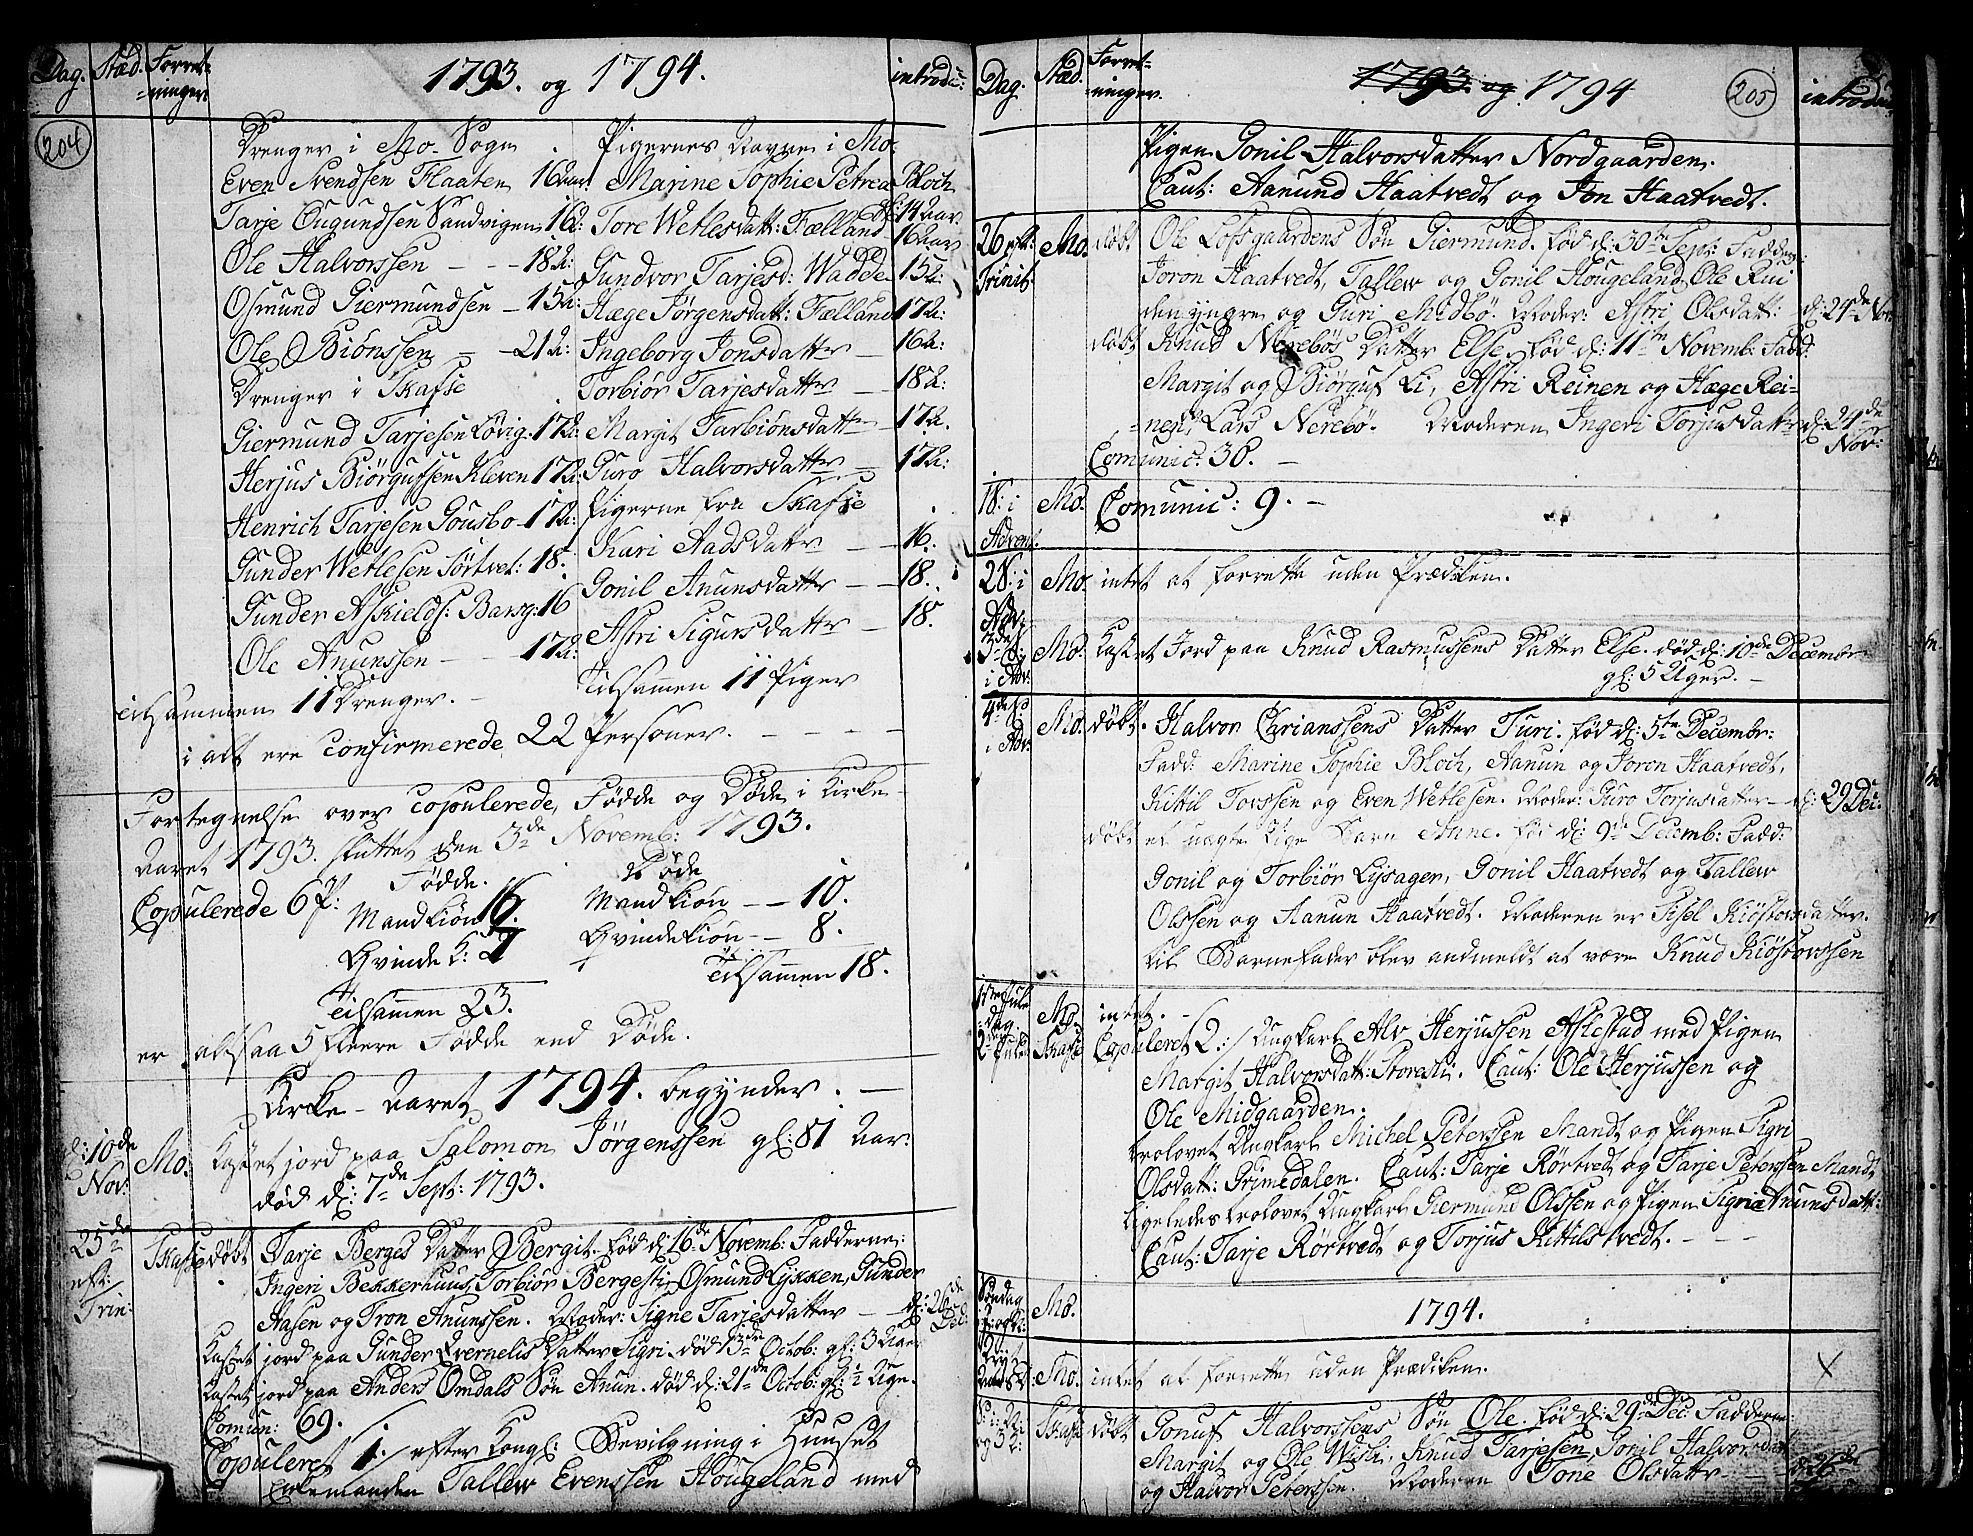 Dag. Stæd. Forret- 1793. og 1794. introd:
ninger
204
Drenger i Mo- Sogn
Even Svendsen Flaaten 16 aar.
Tarje Ougundsen Sandvigen 16 a:
Ole Halvorssen - - - 18 a:
Osmund Giermundsen - 15 a:
Ole Biönssen - - 21 a:
Drenger i Skafse
Giermund Tarjesen Lövig. 17 a:
Herjus Biörgufsen Kleven 17 a:
Henrich Tarjesen Gousbo - 17 a:
Gunder Wetlesen Sörtvet: 18.
Gunder Askields: Barsg: 16
Ole Anunssen - - - 17 a:
tilsammen 11 Drenger. -
Pigernes Navne i Mo.
Marine Sophie Petrea Bloch
14 aar.
Tore Wetlesdatt: Fælland 16 aar
Gundvor Tarjesd: Wadde 15 a:
Hæge Jörgensdatt: Fælland 17 a:
Ingeborg Jonsdatter - 16 a:
Torbiör Tarjesdatter - 18 a:
Margit Tarbiönsdatter - 17 a.
Guro Halvorsdatter - 17 a:
Pigerne fra Skafse
Kari Aadsdatter - - 16.
Gonil Anunsdatter - - 18.
Astri Sigursdatter - 18.
Tilsammen 11 Piger
i alt ere confirmerede 22 Personer. - - - -
Fortegnelse over copulerede, Födde og Döde i Kirke-
Aaret 1793. sluttet den 3de Novemb: 1793.
Copulerede 6 P:
Födde.
Mandkiön 16.
Qvinde K: 7
Tilsamen 23.
Döde
Mandkiön - - 10.
Qvindekiön - - 8.
Tilsammen 18.
er altsaa 5 fleere Födde end Döde.
Kirke-Aaret 1794. begynder. -
d: 10de Nov: Mo. Kastet jord paa Salomon Jörgenssen gl: 81 Aar:
död d: 7de Sept: 1793.
25de eft: Trin: Skafse döbt Tarje Berges Datter Bergit. föd d: 16de Novemb: Fadderne:
Ingeri Bekkerhuus, Torbiör Bergesti, Osmund Lykken, Gunder
Aasen og Tron Anunssen. Moder: Signe Tarjesdatter - - d: 26de Dec:
Kastet jord paa Gunder Qvernelis Datter Sigri död 13de Octob: gl: 3 Uger
Kastet jord paa Anders Omdals Sön Anun. död d: 21de Octob: gl: ½ Uge.
Comun: 69.
Copuleret 1. efter Kongl: Bevilgning i Huuset
Enkemanden Tallew Evenssen Hougeland med
Dag. Stæd. Forret- 1793. og 1794 205 introd:
ninger.
Pigen Gonil Halvorsdatter Nordgaarden.
Caut: Aanund Haatvedt og Jon Haatvedt.
26 eft: Trinit: Mo. döbt Ole Lofsgaardens Sön Giermund. föd d: 30te Sept: Fadder:
Joron Haatvedt, Tallew og Gonil Hougeland, Ole Rui
den yngre og Guri Midbö. Moder: Astri Olsdatt: d: 24de Nov
döbt Knud Nerebös Datter Else. föd d: 11te Novemb: Fadd:
Margit og Biörguf Li, Astri Reinen og Hæge Rei-
nen, Lars Nerebö. Moderen Ingeri Torjusdatter d: 24de Nov:
Comunic: 30. -
1S: i Advent. Mo. Comunic: 9. -
2S: i Adv: Mo. intet at forrette uden Prædiken.
3de S: i Adv: Mo. Kastet Jord paa Knud Rasmussens Datter Else. död d: 10de Decembr
gl: 5 Uger. -
4de S: i Adv: Mo. döbt. Halvor Chrianssens Datter Turi. föd d: 5te Decembr:
Fadd: Marine Sophie Bloch, Aanun og Joron Haatvedt,
Kittil Torssen og Even Wetlesen. Moder: Guro Torjusdatter - d: 29 Dec:
döbt et uægte Pige Barn Anne. föd d: 9de Decemb: Fadd:
Gonil og Torbiör Lysager, Gonil Haatvedt og Tallew
Olssen og Aanun Haatvedt. Moderen er Sisel Kiöstovsdatter.
til Barnefader blev andmeldt at være Knud Kiöstovssen
1ste Jule dag. Mo. intet. -
2den Juled: Skafse Copuleret 2. :/ Ungkarl Alv Herjussen Aslestad med Pigen
Margit Halvorsdatt: Storesli. Caut: Ole Herjussen og
Ole Midgaarden.
trolovet Ungkarl Michel Peterssen Mandt og Pigen Sigri
Olsdatt: Grimedalen. Caut: Tarje Rörtvedt og Tarje Peterssen Mandt
ligeledes trolovet Ungkarl Giermund Olssen og Pigen Signe Anunsdatt:
Caut: Tarje Rörtvedt og Torjus Kittilstvedt. - - -
Söndag Mo. 1794.
Mo. intet at forrette uden Prædiken. X
Skafse döbt Gonuf Halvorssens Sön Ole. föd d: 29de Dec: Fadderne:
Margit og Ole Wisli, Knud Tarjesen, Gonil Halvorsdatt:
og Halvor Peterssen. Moderen Tone Olsdatter -